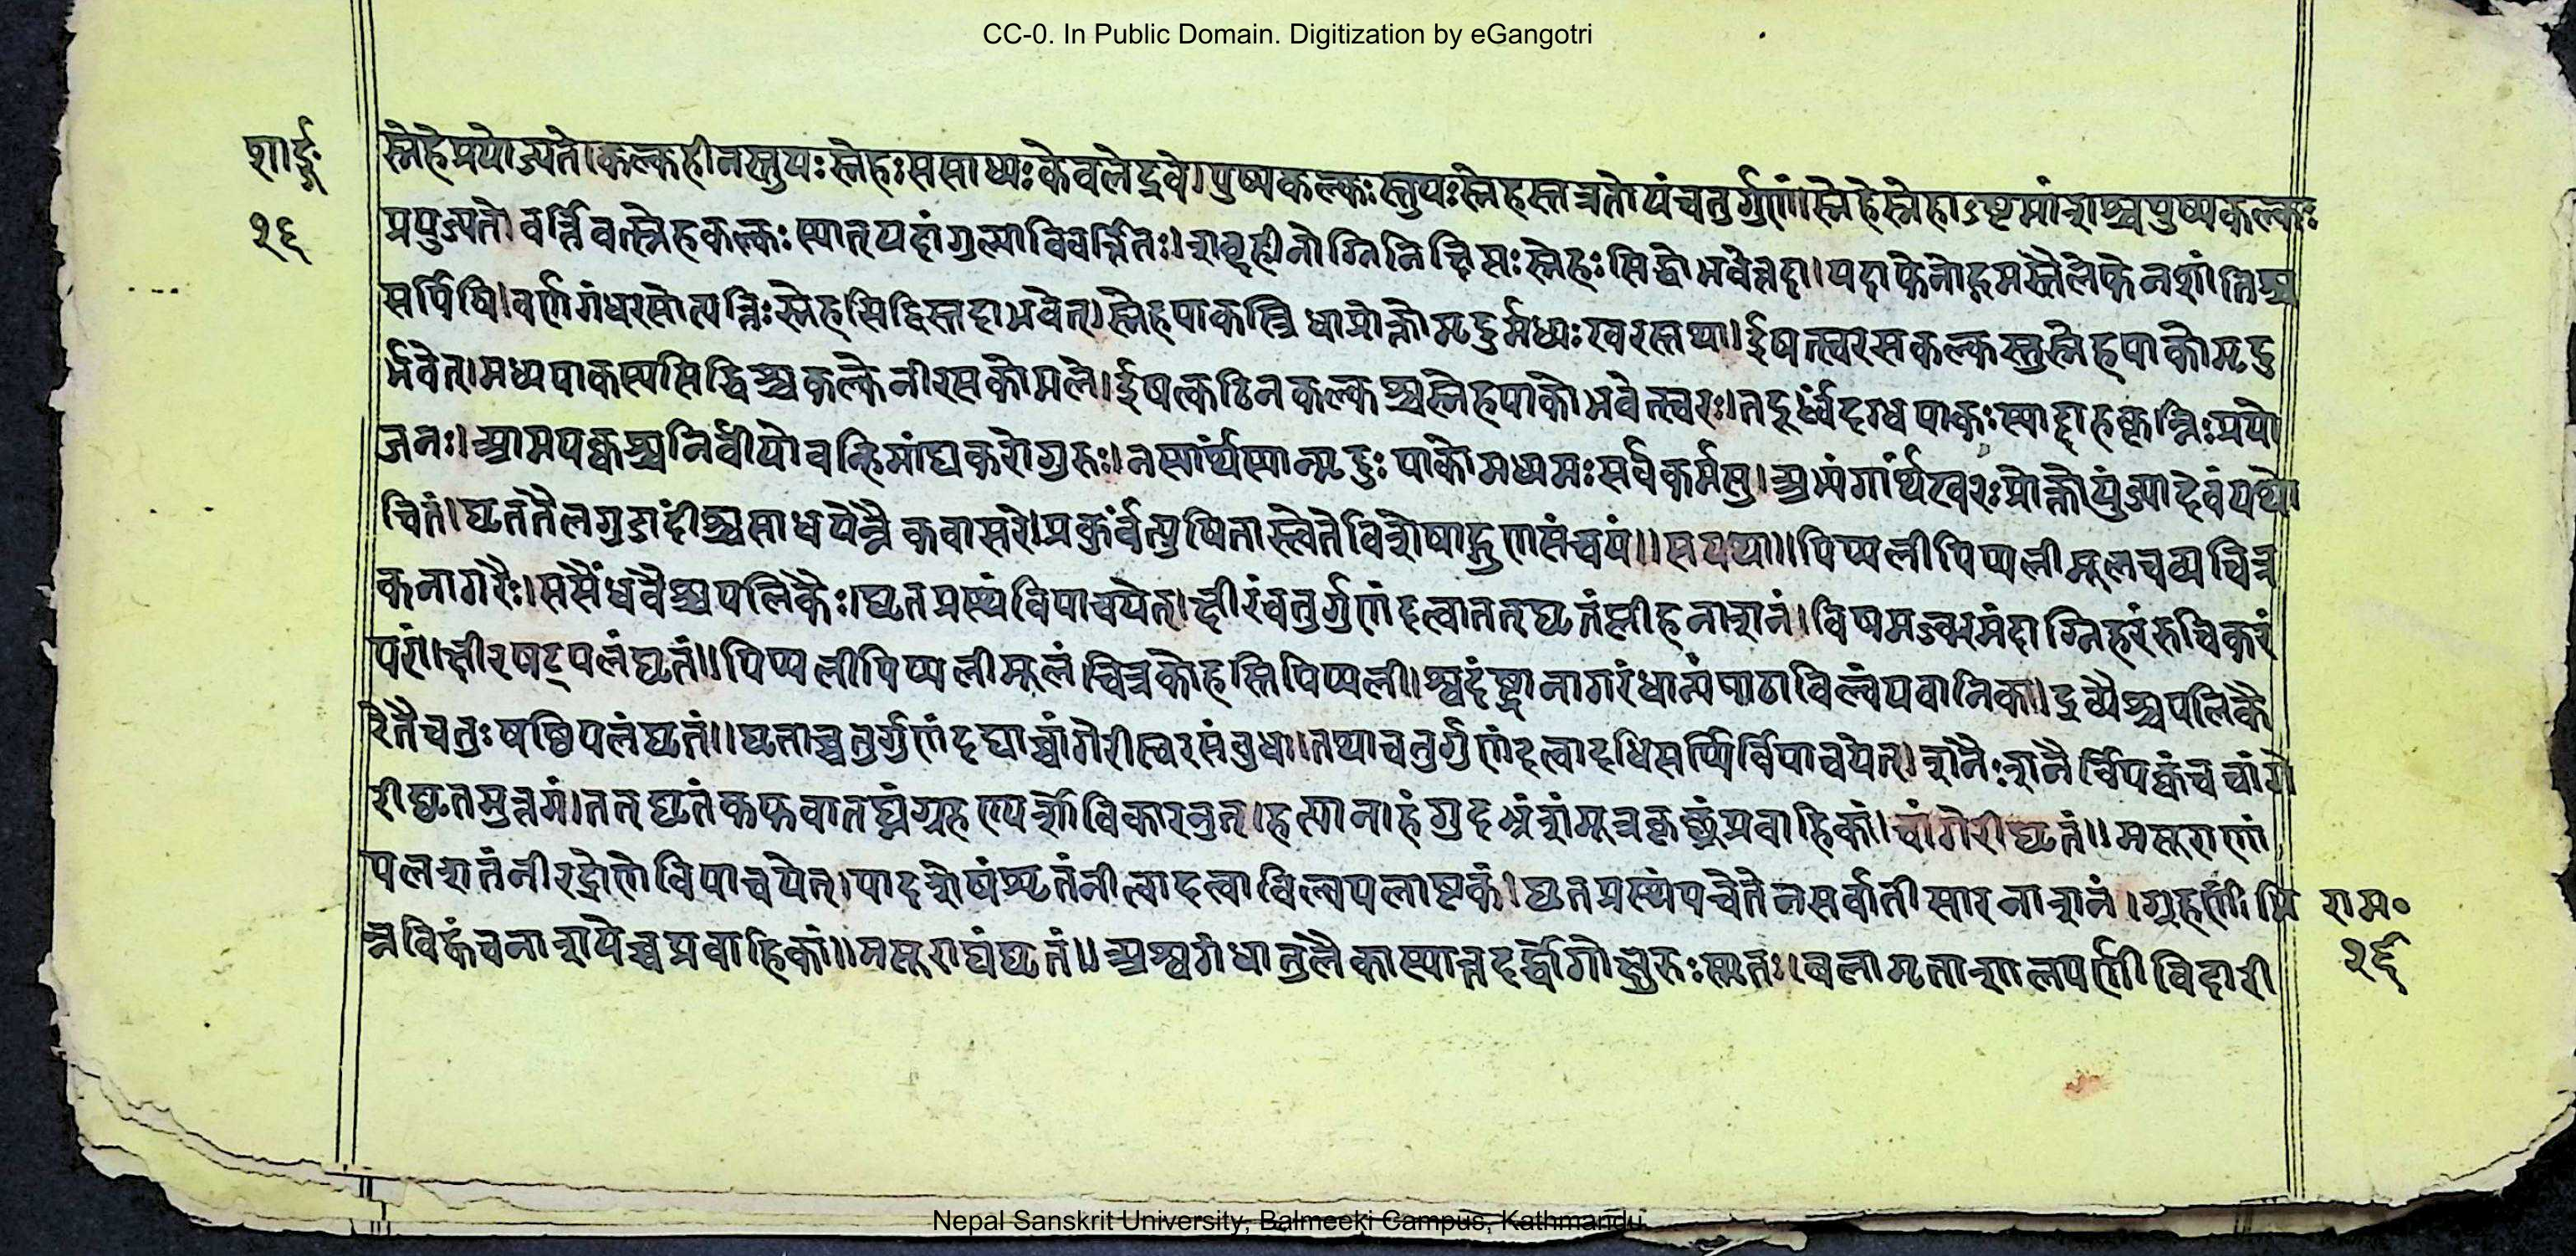 CC-0. In Public Domain. Digitization by eGangotri
शार्ङ्ग
१६
स्नेहेप्रयोज्यते।कल्कहीनस्तुयःस्नेहःससाध्यःकेवलेद्रवे।पुष्पकल्कःस्तुयःस्नेहस्तत्रतोयंचतुर्गुणं।स्नेहेस्नेहाऽष्टमांशश्चपुष्पकल्कः
प्रयुज्यते।वर्त्तिवत्स्नेहकल्कःस्यात्यदांगुल्याविवर्त्तितः।शब्दहीनोग्निनिक्षिप्तःस्नेहःसिद्धोभवेत्तदा।यदाफेनोद्गमस्तैलेफेनशांतिश्च
सर्पिषि।वर्णगंधरसोत्पत्तिःस्नेहसिद्धिस्तदाभवेत्।स्नेहपाकस्त्रिधाप्रोक्तोमृदुर्मध्यःखरस्तथा।ईषत्स्वरसकल्कस्तुस्नेहपाकोमृदु
र्भवेत्।मध्यपाकस्यसिद्धिश्चकल्केनीरसकोमले।ईषत्कठिनकल्कश्चस्नेहपाकोभवेत्खरः।तदूर्ध्वंदग्धपाकःस्याद्दाहकृन्निःप्रयो
जनः।आमपक्वश्चनिर्वीर्योवह्निमांद्यकरोगुरुः।नस्यार्थंस्यान्मृदुःपाकोमध्यमःसर्वकर्मसु।अभ्यंगार्थंखरःप्रोक्तोयुंज्यादेवंयथो
चितं।घृततैलगुडादींश्चसाधयेन्नैकवासरे।प्रकुर्वंत्युषितास्त्वेतेविशेषाद्गुणसंचयं॥सयथा॥पिप्पलीपिप्पलीमूलचव्यचित्र
कनागरैः।ससैंधवैश्चपलिकैः।घृतप्रस्थंविपाचयेत्।क्षीरंचतुर्गुणंदत्वाततघृतंप्लीहनाशनं।विषमज्वरमंदाग्निहरंरुचिकरं
परं।क्षीरषट्पलंघृतं॥पिप्पलीपिप्पलीमूलंचित्रकोहस्तिपिप्पली।श्वदंष्ट्रानागरंधान्यंपाठाविल्वंयवानिका।द्रव्यैश्चपलिकै
रेतैचतुःषष्ठिपलंघृतं॥घृताच्चतुर्गुणंदद्याच्चांगेरीस्वरसंबुधः।तथाचतुर्गुणंदत्वादधिसर्पिर्विपाचयेत्।शनैःशनैर्विपक्वंचचांगे
रीघृतमुत्तमं।तत्घृतंकफवातघ्नंग्रहण्यर्शोविकारनुत्।हंत्यानाहंगुदभ्रंशंमूत्रकृच्छ्रंप्रवाहिकां।चांगेरीघृतं॥मसूराणां
पलशतंनीरद्रोणेविपाचयेत्।पादशेषंशृतंनीत्वादत्वाविल्वपलाष्टकं।घृतप्रस्थंपचेतेनसर्वातीसारनाशनं।ग्रहणीं भि
न्नविट्कंचनाशयेच्चप्रवाहिकां॥मसूराद्यंघृतं॥अश्वगंधातुलैकास्यात्तदर्द्धोगोक्षुरुःस्मृतः।बलामृताशालपर्णीविदारी
राम०
१६
Nepal Sanskrit University, Balmeeki Campus, Kathmandu